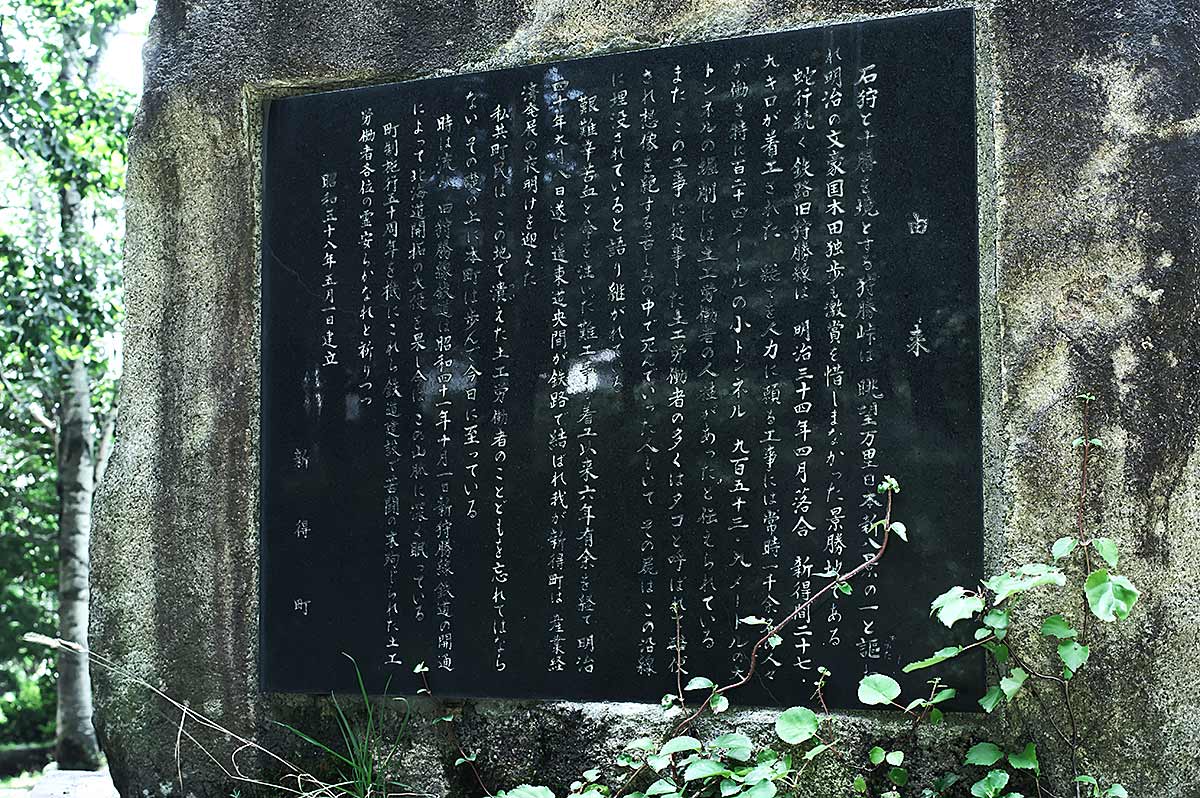 由来
石狩と十勝を境とする狩勝峠は 眺望万里日本新八景の一と謳わ
れ明治の文豪国木田独歩も激賞を惜しまなかった景勝地である
蛇行続く鉄路旧狩勝線は 明治三十四年四月落合 新得間二十七・
九キロが着工された 総てを人力に頼る工事には常時一千余名の人々
が働き特に百二十四メートルの小トンネル 九百五十三・九メートルの大
トンネルの掘削には土工労働者の人柱があったと伝えられている
また この工事に従事した土工労働者の多くはタコと呼ばれ
され想像を絶する苦しみの中で死んでいった人もいて その屍は この沿線
に埋没されていると語り継がれ
艱難辛苦血と命を注いだ難工事も着工以来六年有余を経て 明治
四十年九月八日遂に道東道央間が鉄路で結ばれ我が新得町は 産業経
済発展の夜明けを迎えた
私共町民は この地で潰えた土工労働者のことどもを忘れてはなら
ない その礎の上に本町は歩んで今日に至っている
時は流れ 旧狩勝線鉄道は昭和四十一年十月一日新狩勝線鉄道の開通
によって北海道開拓の大使命を果し今は この山脈に深く眠っている
町制施行五十周年を機にこれら鉄道建設で苦闘の末殉じられた土工
労働者各位の霊安らかなれと祈りつつ
昭和五十八年五月一日建立
新得町